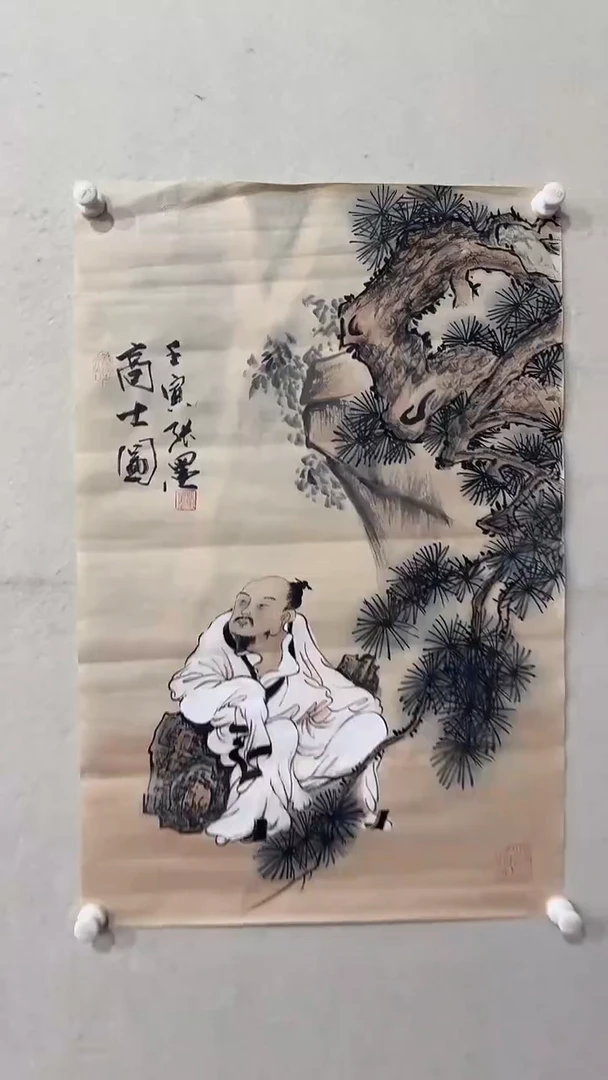 壬寅張墨
高士圖